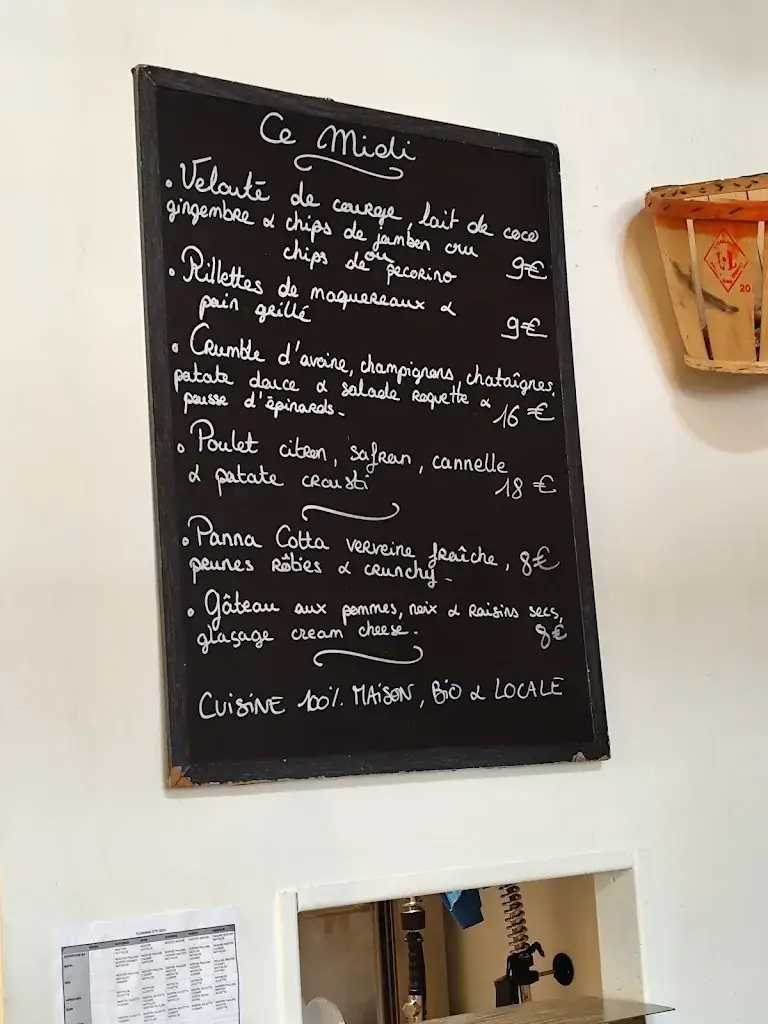 Ce Midi
• Velouté de courge, lait de coco
gingembre & chips de jambon cru
ou
chips de pecorino 9€
• Rillettes de maquereaux &
pain grillé 9€
• Crumble d'avoine, champignons, chataîgnes,
patate douce & salade roquette &
pousse d'épinards - 16 €
• Poulet citron, safran, cannelle
& patate crousti 18 €
• Panna Cotta verveine fraîche, 8€
prunes rôties & crunchy -
• Gâteau aux pommes, noix & raisins secs,
glaçage cream cheese - 8€
CUISINE 100% MAISON, BIO & LOCALE
20